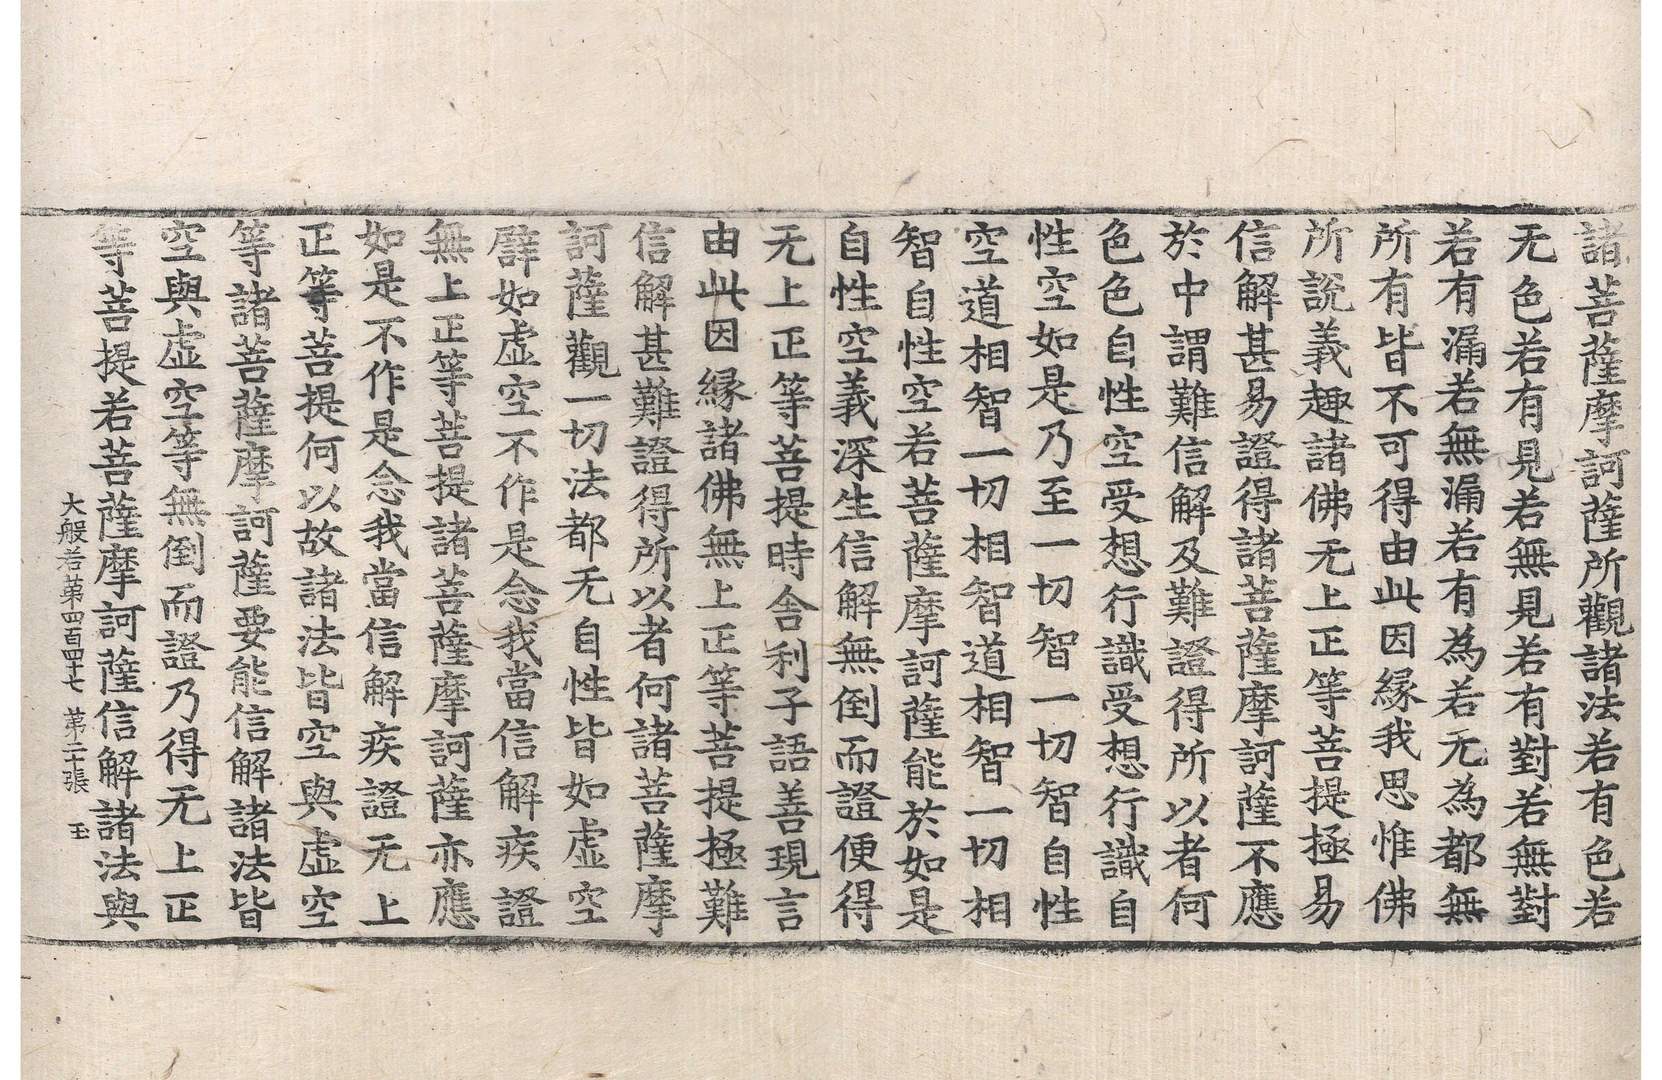 諸菩薩摩訶薩所觀諸法若有色若
无色若有見若無見若有對若無對
若有漏若無漏若有為若无為都無
所有皆不可得由此因縁我思惟佛
所說義趣諸佛无上正等菩提極易
信解甚易證得諸菩薩摩訶薩不應
於中謂難信解及難證得所以者何
色色自性空受想行識受想行識自
性空如是乃至一切智一切智自性
空道相智一切相智道相智一切相
智自性空若菩薩摩訶薩能於如是
自性空義深生信解無倒而證便得
无上正等菩提時舍利子語善現言
由此因縁諸佛無上正等菩提極難
信解甚難證得所以者何諸菩薩摩
訶薩觀一切法都无自性皆如虛空
譬如虛空不作是念我當信解疾證
無上正等菩提諸菩薩摩訶薩亦應
如是不作是念我當信解疾證无上
正等菩提何以故諸法皆空與虛空
等諸菩薩摩訶薩要能信解諸法皆
空與虛空等無倒而證乃得无上正
等菩提若菩薩摩訶薩信解諸法與
大般若第四百四十七 第二十張 玉